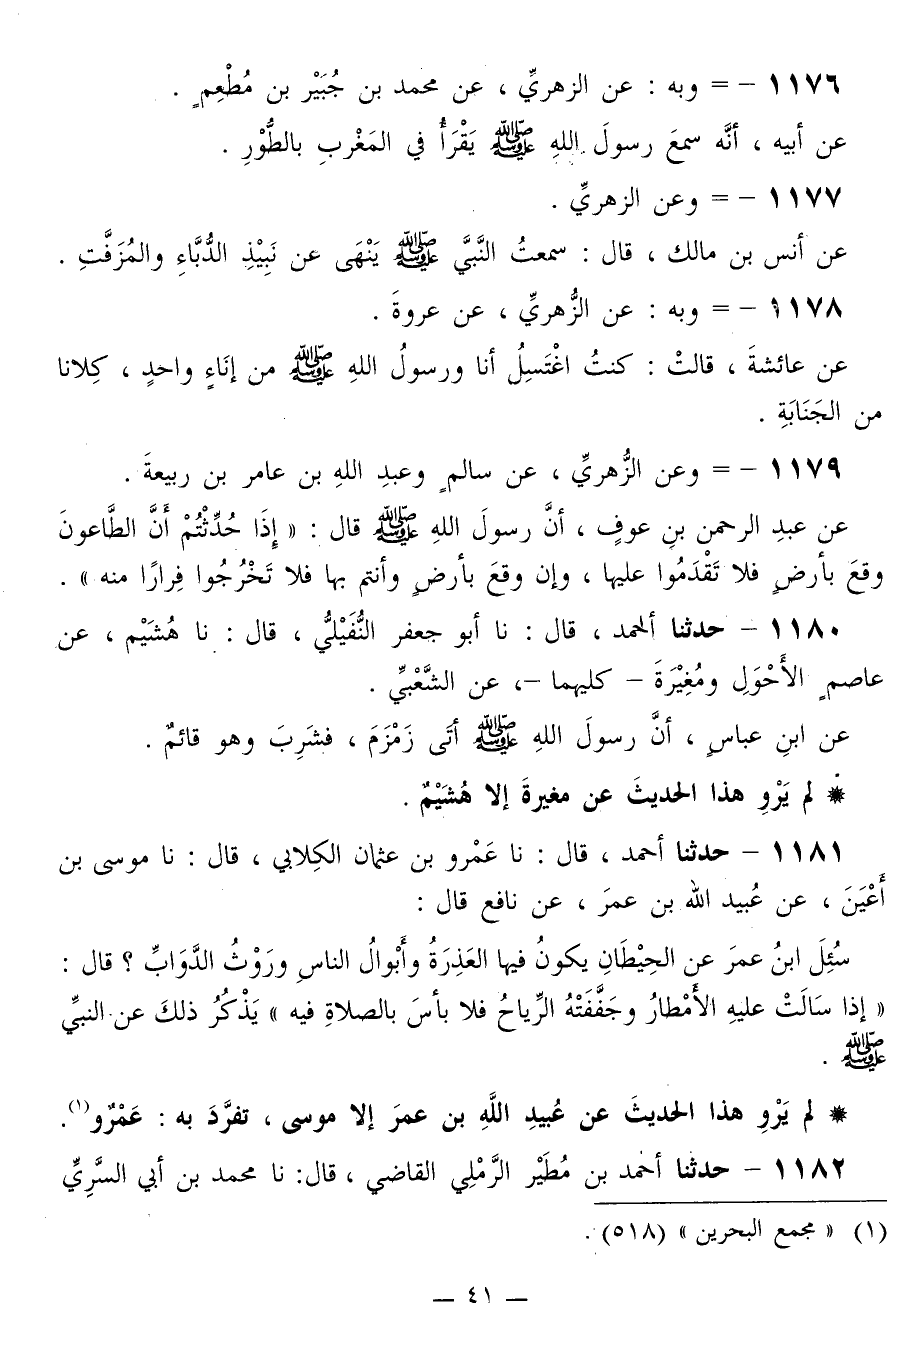 ١١٧٦ – = وبه : عن الزهريِّ ، عن محمد بن جُبَيْر بن مُطْعِمٍ .
عن أبيه ، أنَّه سمعَ رسولَ اللهِ ﷺ يَقْرَأُ في المَغْربِ بالطُّوْرِ .
١١٧٧ – = وعن الزهريِّ .
عن أنس بن مالك ، قال : سمعتُ النَّبيَّ ﷺ يَنْهَى عن نَبِيْذِ الدُّبَّاءِ والمُزَفَّتِ .
١١٧٨ – = وبه : عن الزُّهريِّ ، عن عروةَ .
عن عائشةَ ، قالتْ : كنتُ اغْتَسِلُ أنا ورسولُ اللهِ ﷺ من إنَاءٍ واحدٍ ، كِلانا
من الجَنَابَةِ .
١١٧٩ – = وعن الزُّهريِّ ، عن سالمٍ وعبدِ اللهِ بن عامر بن ربيعةَ .
عن عبدِ الرحمن بنِ عوفٍ ، أنَّ رسولَ اللهِ ﷺ قال : « إِذَا حُدِّثْتُمْ أَنَّ الطَّاعونَ
وقعَ بأرضٍ فلا تَقْدَمُوا عليها ، وإن وقعَ بأرضٍ وأنتم بها فلا تَخْرُجُوا فِرارًا منه » .
١١٨٠ – حدثنا ألحمد ، قال : نا أبو جعفر النُّفَيْليُّ ، قال : نا هُشَيْم ، عن
عاصمٍ الأَحْوَلِ ومُغِيْرَةَ – كليهما –، عن الشَّعْبيِّ .
عن ابنِ عباسٍ ، أنَّ رسولَ اللهِ ﷺ أتَى زَمْزَمَ ، فشَرِبَ وهو قائمٌ .
* لم يَرْوِ هذا الحديثَ عن مغيرةَ إلا هُشَيْمٌ .
١١٨١ – حدثنا أحمد ، قال : نا عَمْرو بن عثمان الكِلابي ، قال : نا موسى بن
أَعْيَنَ ، عن عُبيد الله بن عمرَ ، عن نافع قال :
سُئِلَ ابنُ عمرَ عن الحِيْطَانِ يكونُ فيها العَذِرَةُ وأَبْوالُ الناسِ ورَوْثُ الدَّوَابِّ ؟ قال :
« إذا سَالَتْ عليهِ الأَمْطارُ وجَفَّفَتْهُ الرِّياحُ فلا بأسَ بالصلاةِ فيه » يَذْكُرُ ذلك عن النبيِّ
ﷺ .
* لم يَرْوِ هذا الحديثَ عن عُبيدِ اللَّهِ بن عمرَ إلا موسى ، تفرَّدَ به : عَمْرٌو(١).
١١٨٢ – حدثنا أحمد بن مُطَيْر الرَّمْلي القاضي ، قال: نا محمد بن أبي السَّرِيِّ
(١) « مجمع البحرين » (٥١٨) .
— ٤١ —